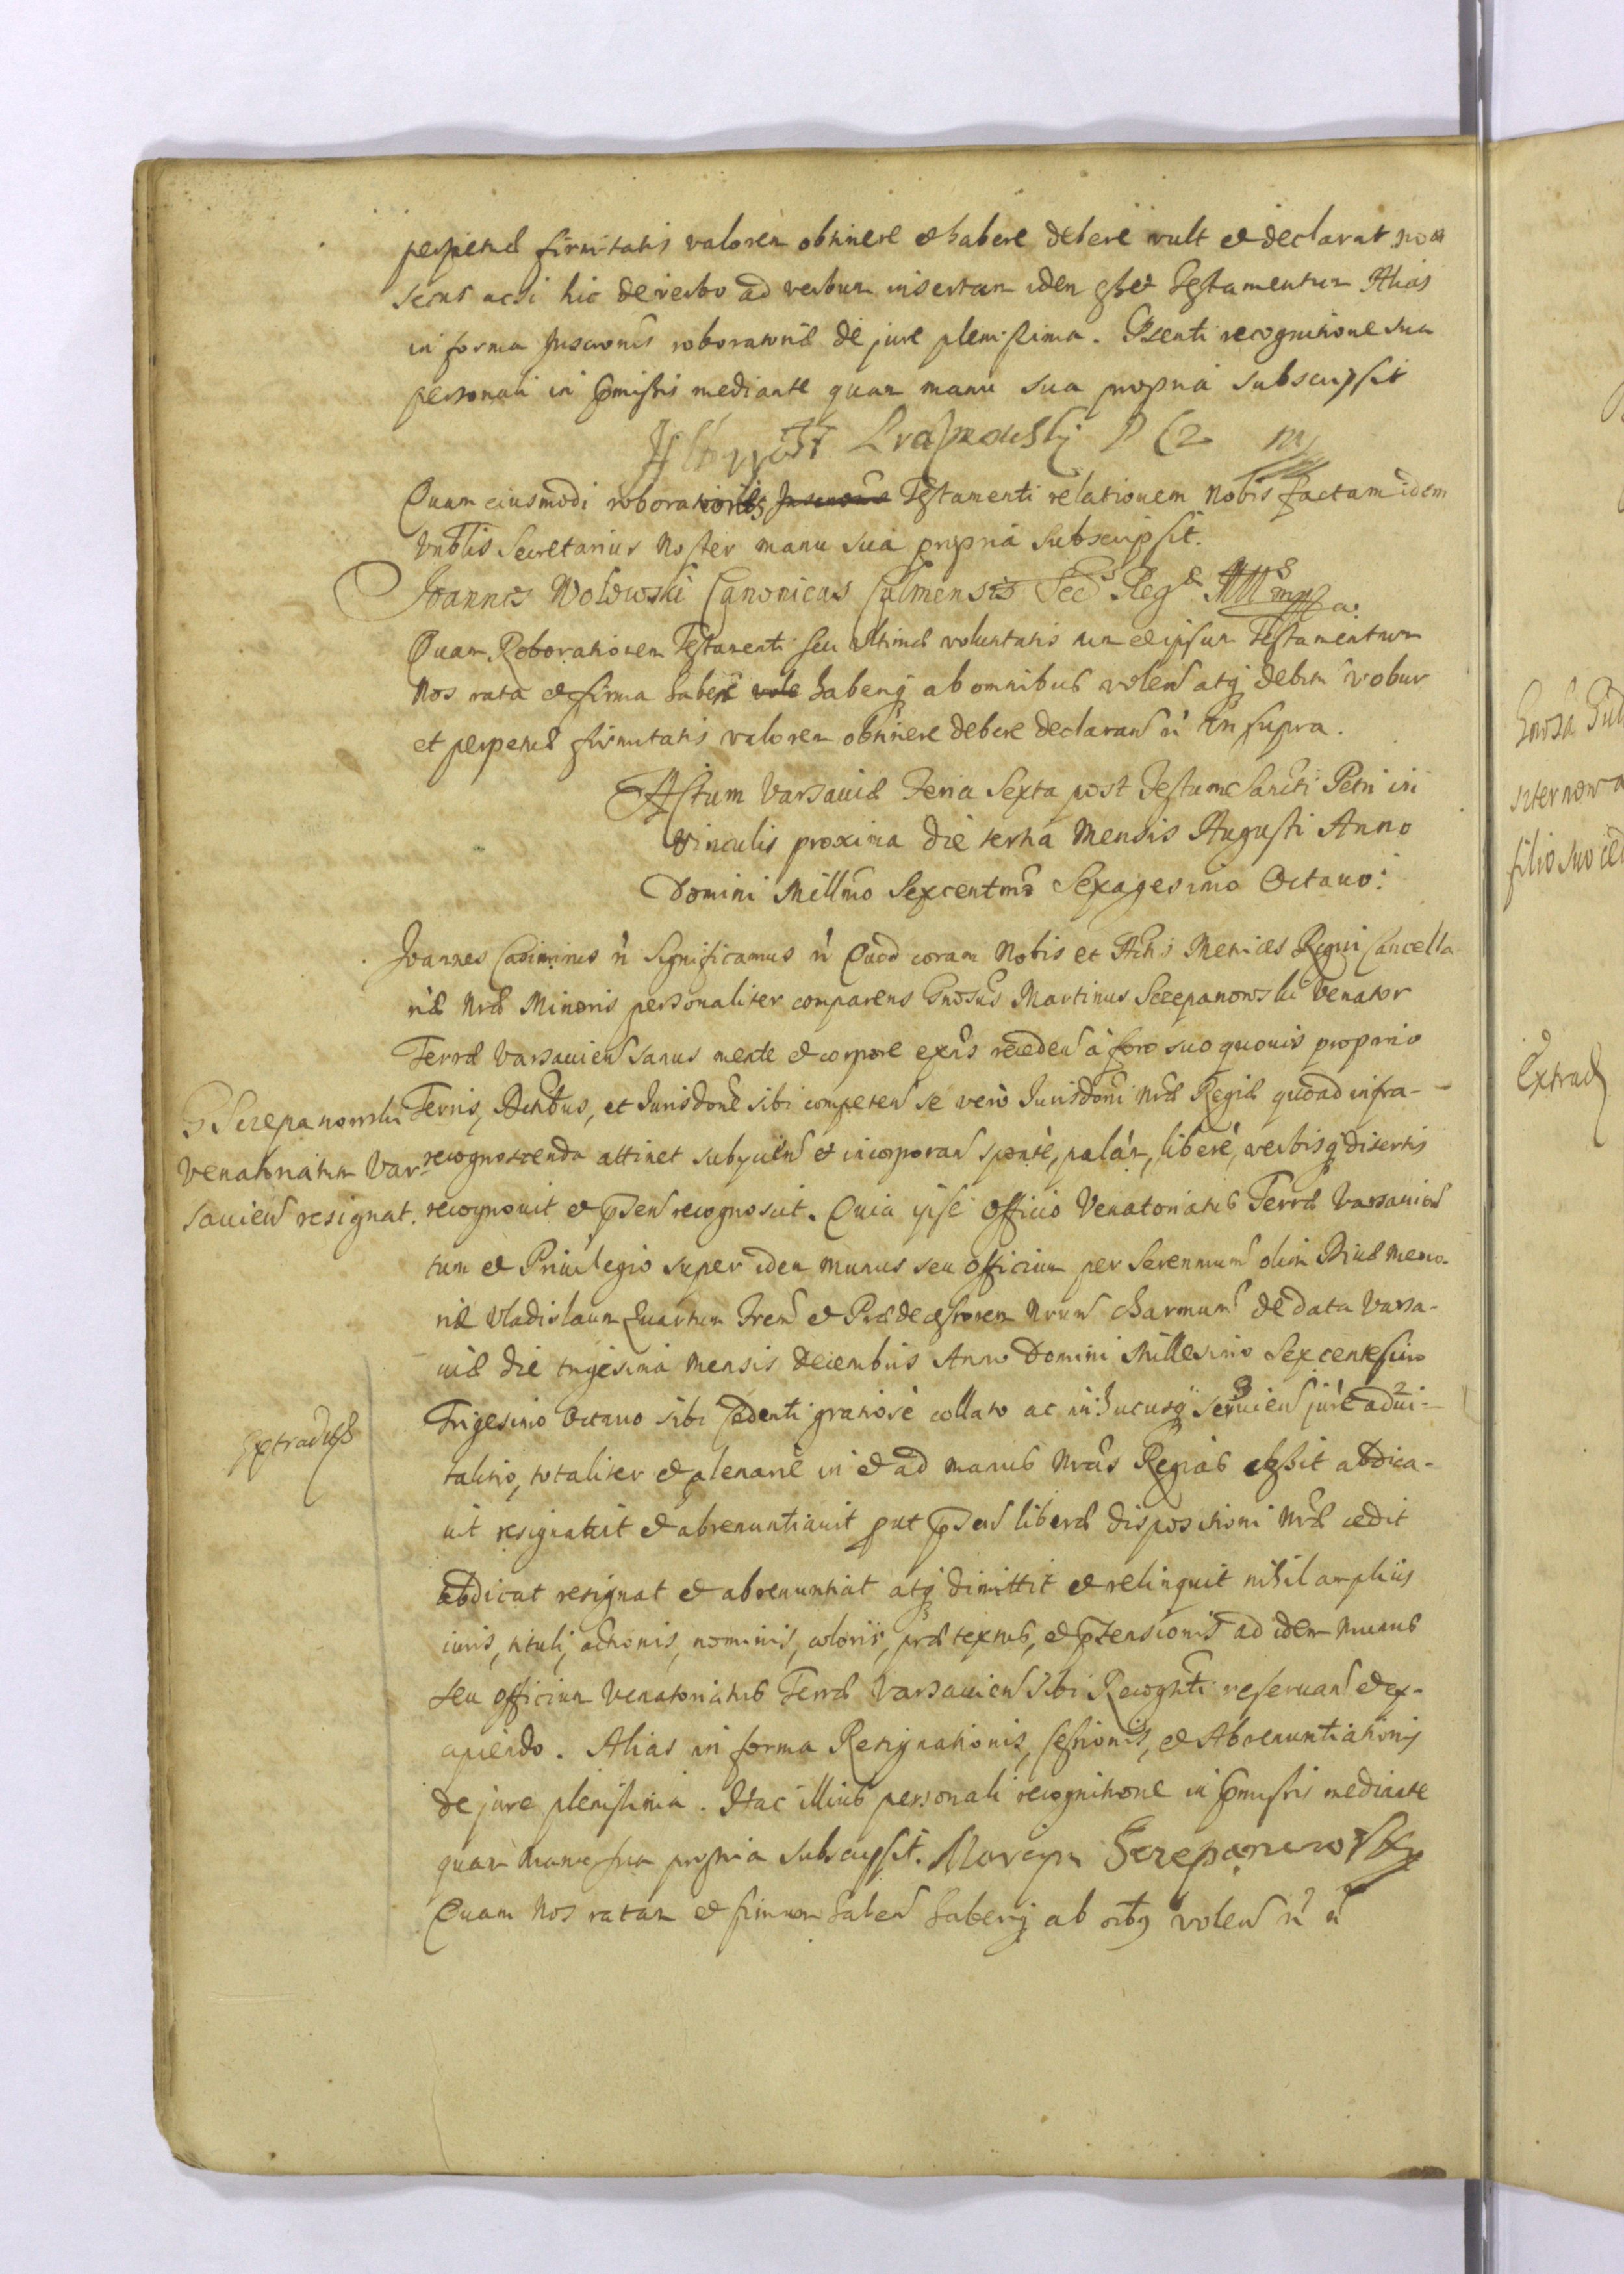 perpetuæ firmitatis valorem obtinere et habere debere vult et declarat non
secus acsi hic de verbo ad verbum insertum idem esset Testamentum Alias
in forma roboratoriæ de jure plenissima. Pſenti recognitione sua
personali in pmiſſis mediante quam manu sua propria subscripsit
Krasnowski
Quam eiusmodi roborationis Testamenti relationem Nobis factam idem
Vrbłis Secretarius Noster manu sua propria subscripsit.
Joannes Wolowski Canonicus Culmensis Sec Reg MM mppa.
Quam Roborationem Testamenti seu ultimæ voluntatis tum et ipsum Testamentum
Nos rata et firma habere vole haberiq ab omnibus volens atq debitu robur
et perpetuæ firmitatis valorem obtinere debere declarans ut supra.
Actum Varsauiæ Feria Sexta post Festum Sancti Petri in
vinculis proxima die tertia Mensis Augusti Anno
Domini Millmo Sexcentmo Sexagesimo Octauo.
Joannes Casimirus Significamus Quod coram Nobis et Actis Metrices Regni Cancella
riæ Nræ Minoris personaliter comparens Gnosus Martinus Szczepanowski Venator
Terræ Varsauien sanus mente et corpore exns recedens à foro suo quouis proprio
G Szczepanowski Venatoriatum Var-
sauien resignat.
Terris, Districtibus, et Jurisdone sibi competen se vero Jurisdoni Nræ Regiæ quoad infra-
recognoscenda attinet subyciens et incorporans sponte, palàm, libere, verbisq disertis
recognouit et pſens recognoscit. Quia ipse Officio Venatoriatus Terræ Varsauien
tum et Priuilegio super idem munus seu officium per Serennum olim Diuæ Memo-
riæ Vladislaum Quartum Frem et Prædecessorem Nrum Charmum de data Varsa-
uiæ die trigesima Mensis Decembris Anno Domini Millesimo Sexcentesimo
Trigesimo Octauo sibi cedenti gratiose collato ac in hucusq seruien jure adui-
Extradus
talitio, totaliter et plenarie in et ad manus Nras Regias cessit abdica-
uit resignauit et abrenuntiauit put pſens liberæ dispositioni Nræ cedit
abdicat resignat et abrenuntiat atq dimittit et relinquit nihil amplius
iuris, tituli, actionis, nominis, coloris, prætextus, et ptensionis ad idem munus
seu officium Venatoriatus Terræ Varsauien sibi Recognti reseruans et ex-
cipiendo. Alias in forma Resignationis, Cessionis, et Abrenuntiationis
de jure plenissima. Hac illius personali recognitione in pmissis mediante
quam manu sua propria subscripsit. Marcyn Szczepanowsky
Quam Nos ratam et firmam haben haberiq ab oibus volen